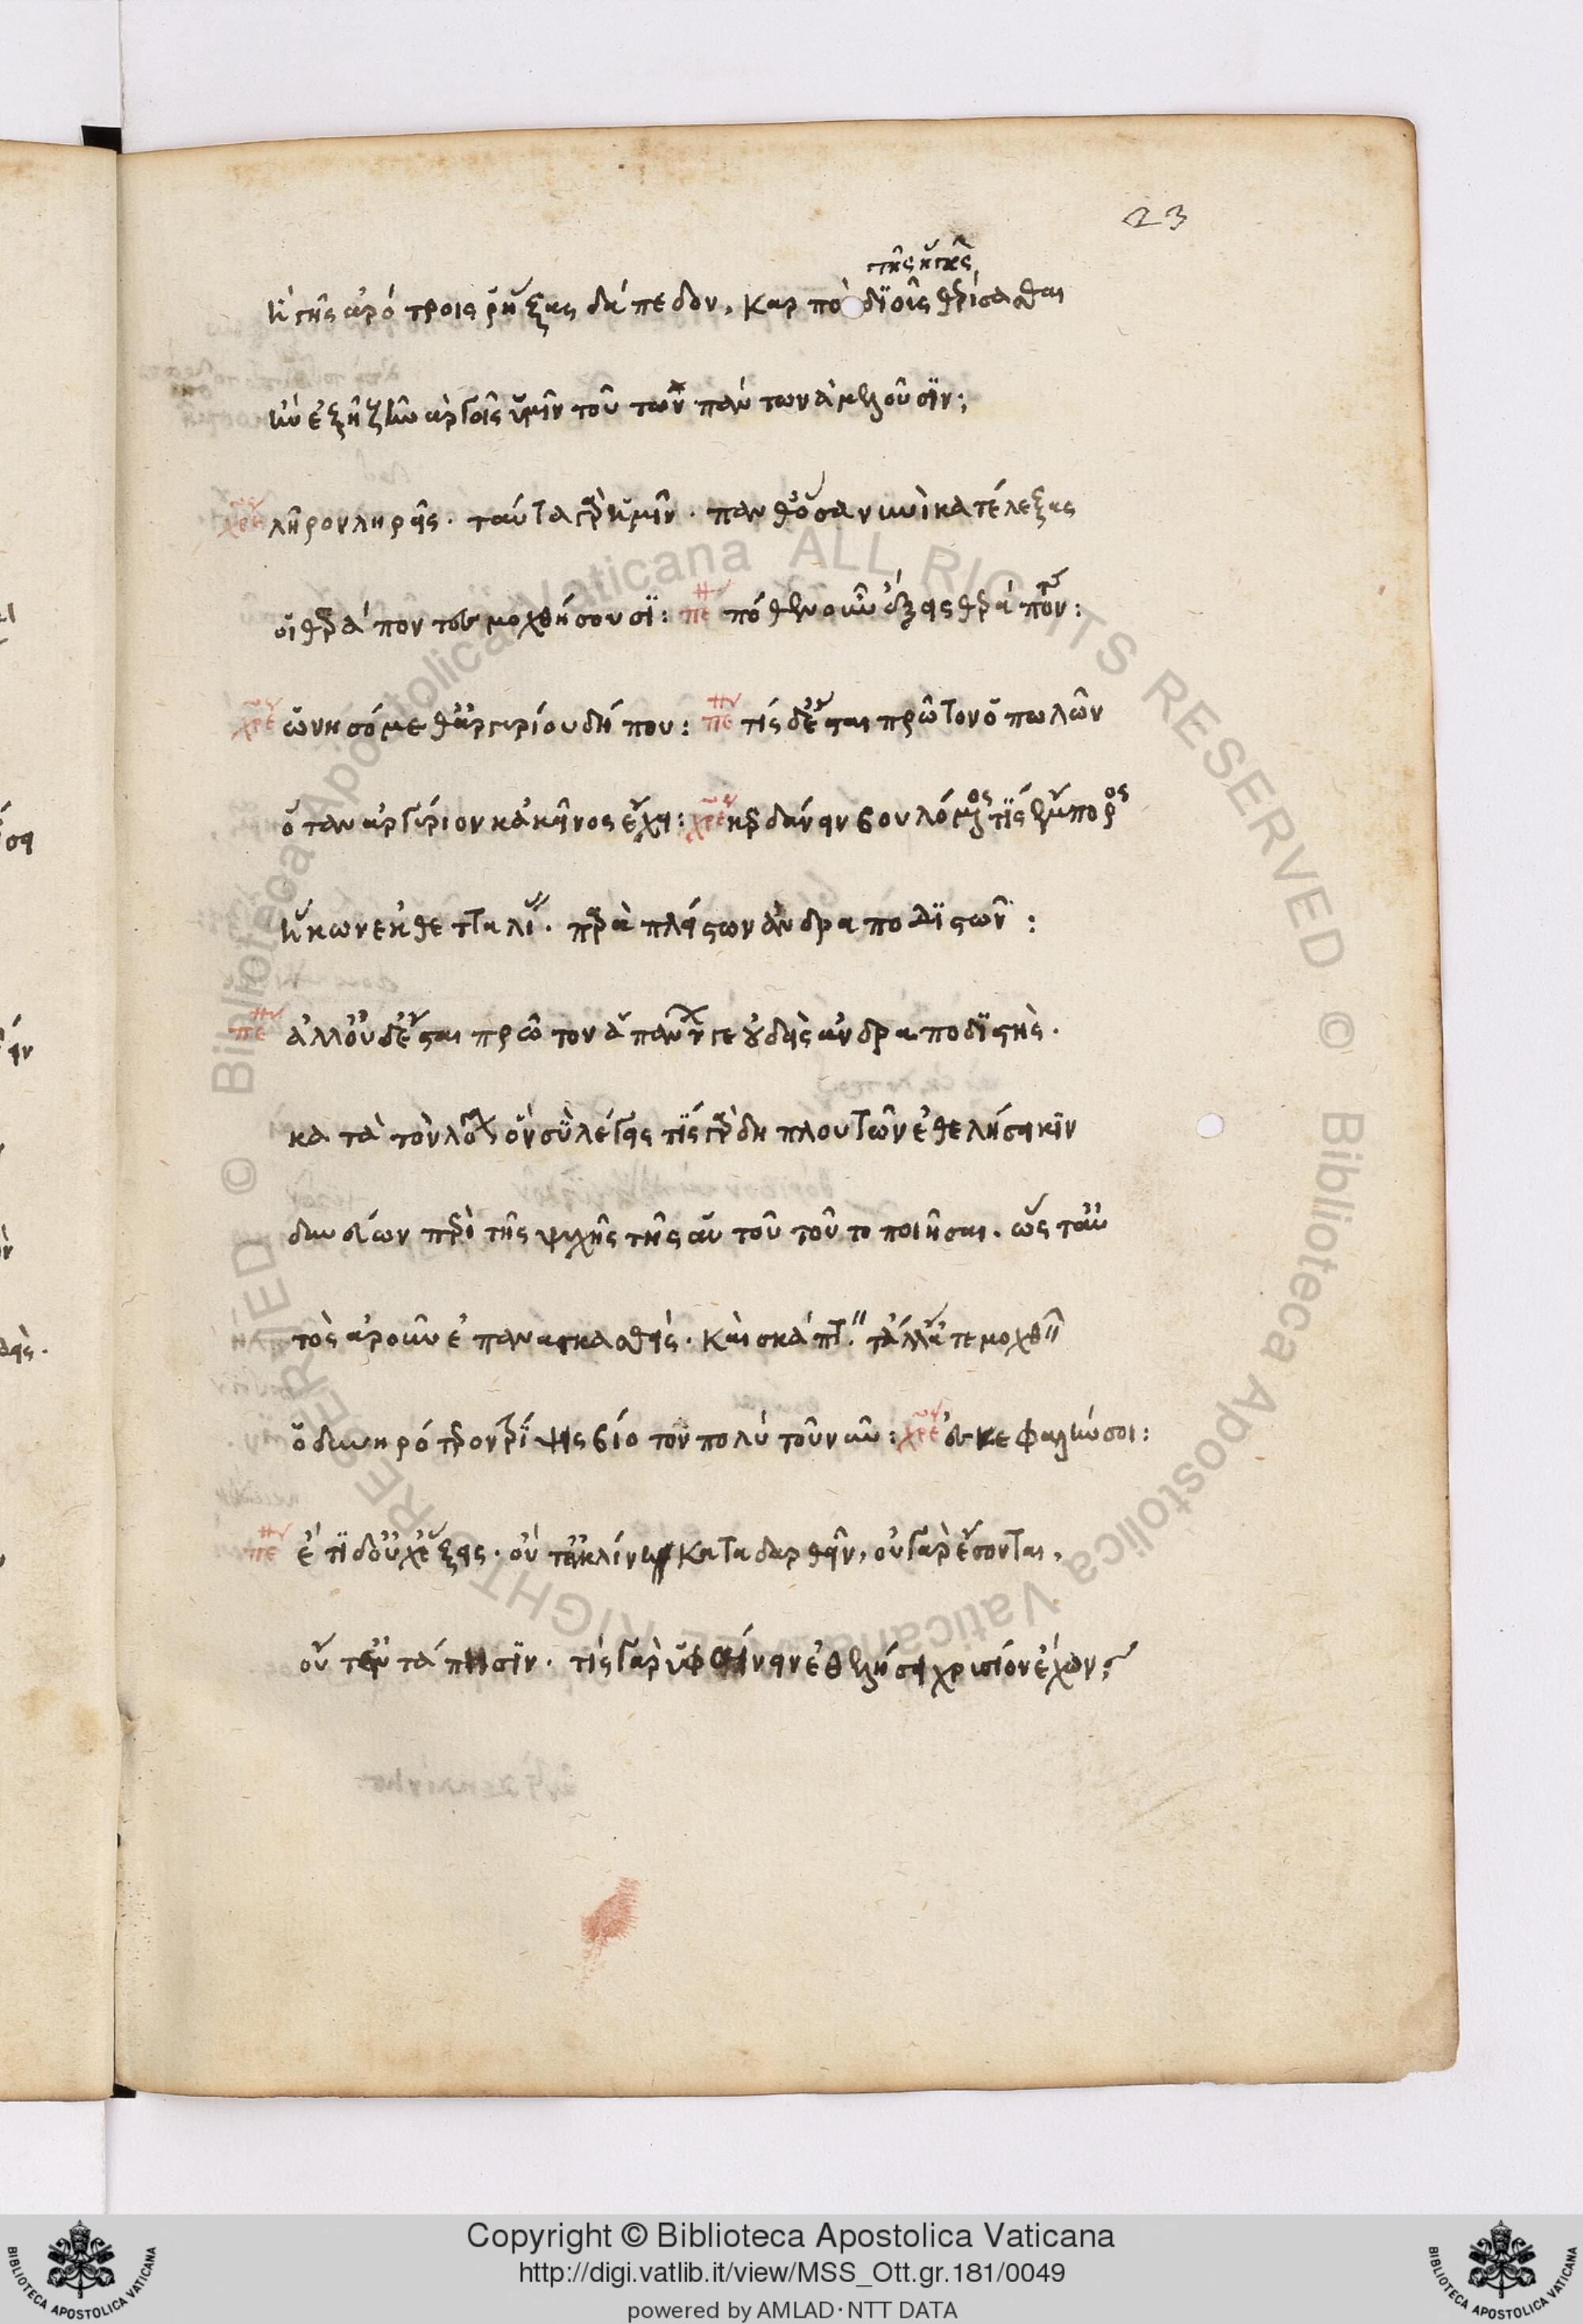 23
τῆς γῆς
ἢ γῆς ἀρότροις ῥήξας δάπεδον, καρπὸ διοῖς θερίσασθαι
ἢν ἐξῆ ζῆν ἀργοῖς ὑμῖν τούτων πάντων ἀμελοῦσϊν;
χρε λῆρον ληρεῖς. ταῦτα γὰρ ἡμῖν. πανθ' ὅσα νυνὶ κατέλεξας
οἱ θεράποντες μοχθήσουσϊ: πε πόθεν οὖν ἕξεις θεράποντας:
χρε ὠνησόμεθ' ἀργυρίου δή που: πε τίς δ' ἔσται πρῶτον ὁ πωλῶν
ὅταν ἀργύριον κἀκεῖνος ἔχη: χρε κερδαίνειν βουλόμενος τὶς ἔμπορος
ἥκων ἐκ θετταλίας. παρὰ πλείστων ἀνδραποδϊστῶν:
πε ἀλλ' οὐδ' ἔσται πρῶτον ἁπάντων γε οὐδεὶς ἀνδραποδϊστὴς.
κατὰ τὸν λόγον ὃν σὺ λέγεις τὶς γὰρ δὴ πλουτῶν ἐθελήσει κϊν
δυνεύων περὶ τῆς ψυχῆς τῆς αὑτοῦ τοῦτο ποιῆσαι. ὥς τ' αὐ
τὸς ἀροῦν ἐπαναγκασθεὶς. καὶ σκάπτειν τἄλλά τε μοχθεῖν
ὀδυνηρότερον τρίψεις βίοτον πολὺ τοῦ νῦν: χρε ἐς κεφαλὴν σοι:
πε ἔτϊ δ' οὐχ ἕξεις. οὔτ' ἐν κλίνῃ καταδαρθεῖν, οὐ γὰρ ἔσονται,
οὔτ' ἐν τάπησϊν. τίς γὰρ ὑφαίνειν ἐθελήσει χρυσίον ἔχων;
Copyright © Biblioteca Apostolica Vaticana
http://digi.vatlib.it/view/MSS_Ott.gr.181/0049
powered by AMLAD·NTT DATA